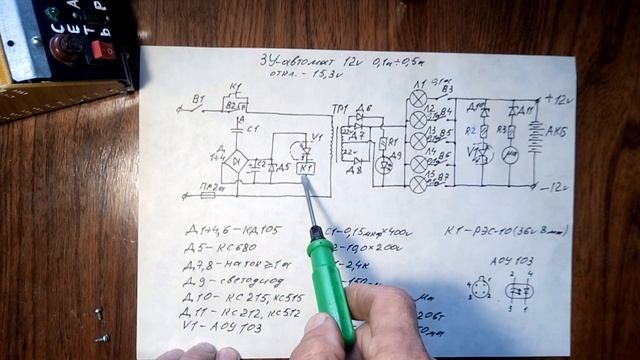 ЗУ-автомат 12v 0,1а÷0,5а
откл. - 15,3v
К1
В1
В2
А
С1
Д1÷4
С2
Д5
V1
К1
Пр2а
ТР1
Д6
Д7
22v
22v
Д8
R1
Д9
Л1 0,1а В3
Л2 В4
Л3 В5
Л4 В6
Л5 В7
Д10
R2
V1
Д11
R3
+12v
АКБ
-12v
Д1÷4,6 - КД105
С1-0,15мкф×400v
К1-РЭС-10(36v 8ма)
Д5 - КС680
2-10,0×200v
Д7,8 - на ток ≥1а
1-2,4к
АОУ103
Д9 - светодиод
Д10 - КС215, КС515
Д11 - КС212, КС512
V1 - АОУ103
2 4
3 1
С
Е
Т
А